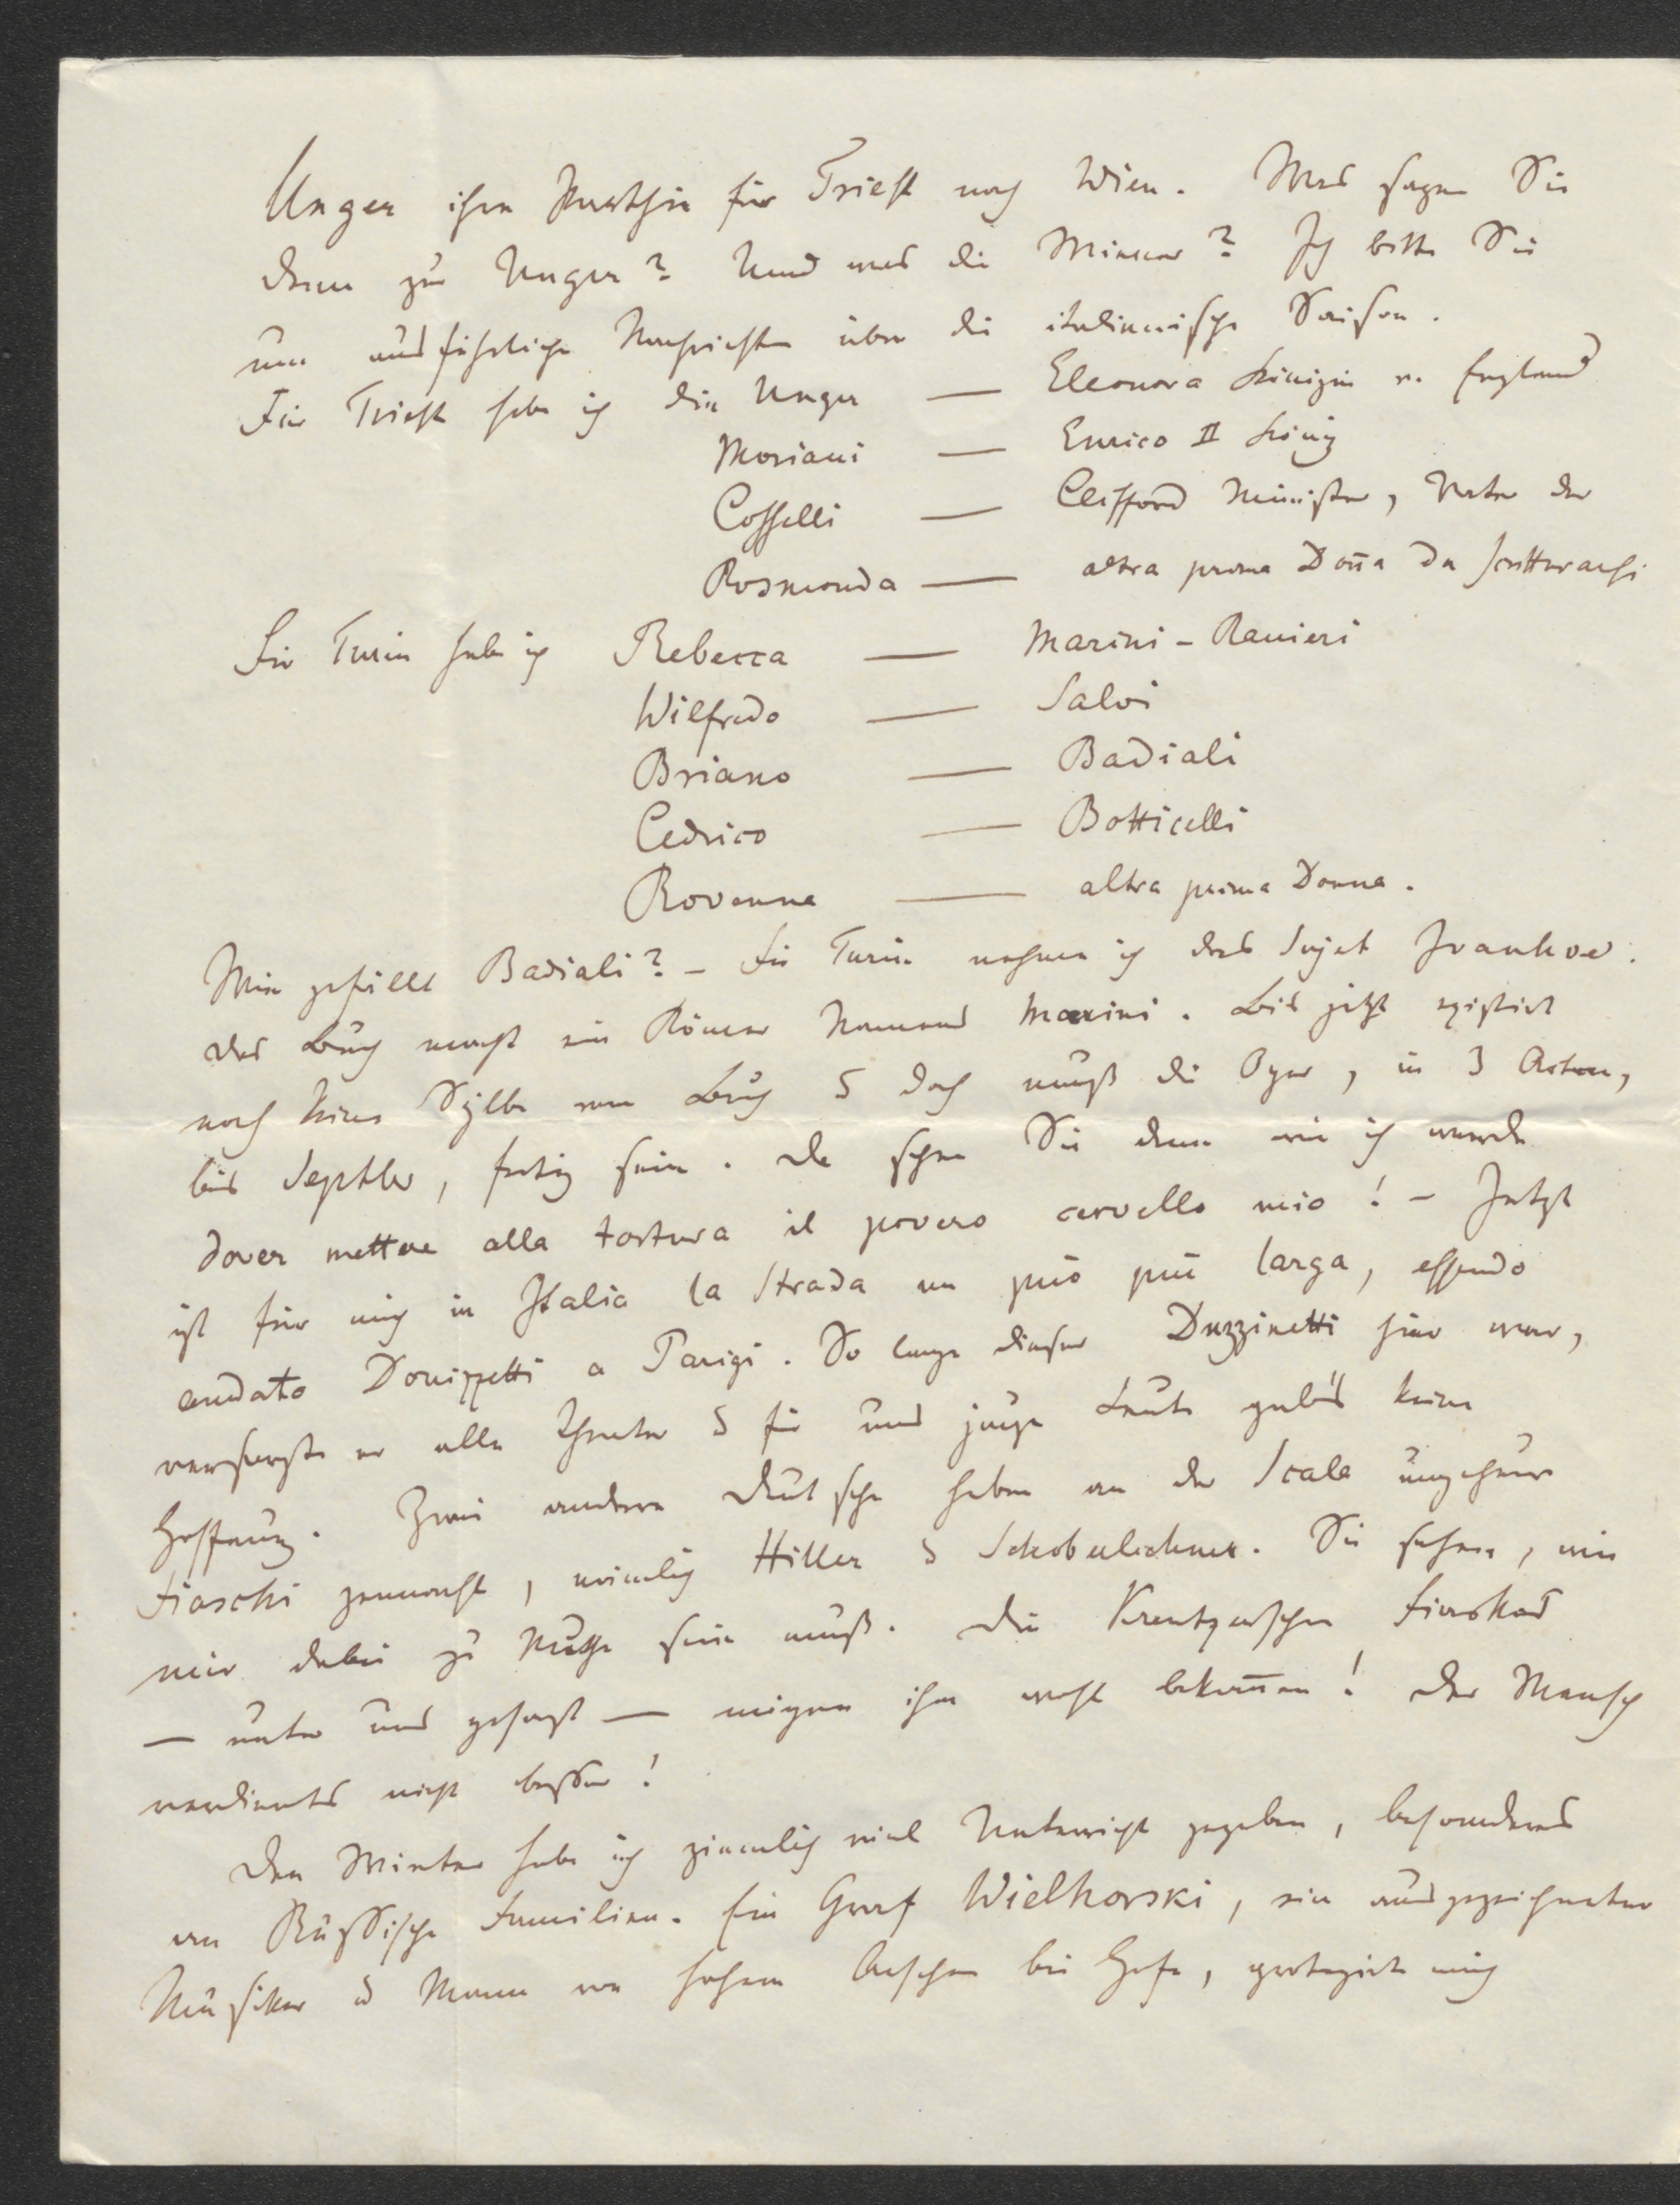 Unger ihre Parthie für Triest nach Wien. Was sagen Sie
denn zur Unger? Und was die Wiener? Ich bitte Sie
um ausführliche Nachrichten über die italienische Saison.
Für Triest habe ich die Unger — Eleonora Königin v. England
Moriani — Enrico II König
Cosselli — Clifford Minister, Vater der
Rosmonda — altra prima Don̄a da scritturarsi
Für Turin habe ich Rebecca — Marini-Ranieri
Wilfredo — Salvi
Briano — Badiali
Cedrico — Botticelli
Rovenna — altra prima Donna.
Wie gefällt Badiali? – Für Turin nehme ich das Sujet Ivanhoe.
Das Buch macht ein Römer Namens Marini. Bis jetzt existirt
noch keine Sylbe vom Buch & doch muß die Oper, in 3 Acten,
bis Septbr, fertig sein. Da sehen Sie denn wie ich werde
dover mettere alla tortura il povero cervello mio! – Jetzt
ist für mich in Italia la strada un può più larga, essendo
andato Donizzetti a Parigi. So lange dieser Duzzinetti hier war,
versorgte er alle Theater & für uns junge Leute gab's keine
Hoffnung. Zwei andere Deutsche haben an der Scala ungeheure
Fiaschi gemacht, nämlich Hiller & Schoberlechner. Sie sehen, wie
mir dabei zu Muthe sein muß. Die Kreutzerschen Fiaskos
— unter uns gesagt — mögen ihm wohl bekom̄en! Der Mensch
verdients nicht besser!
Den Winter habe ich ziemlich viel Unterricht gegeben, besonders
an Russische Familien. Ein Graf Wielhorski, ein ausgezeichneter
Musiker & Mann von hohem Ansehen bei Hofe, protegirte mich